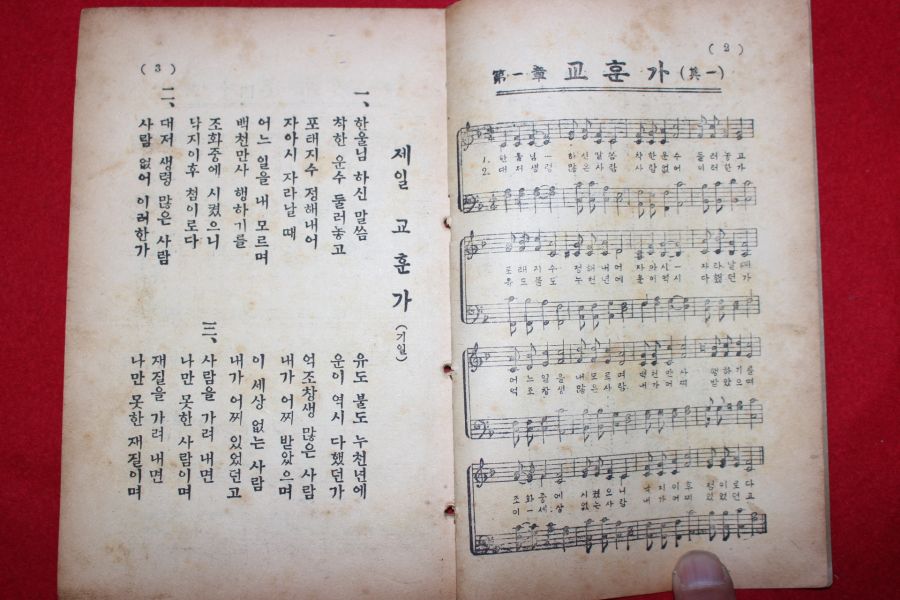 (2)
第一章 교훈가 (其一)
1. 한울님ー 하신말씀 착한운수 둘러놓고
2. 대저생령 많은사람 사람없어 이러한가
포태지수 정해내어 자아시ー 자라날때
유도불도 누천년에 운이역시 다했던가
어느일을 내모르며 백천만사 행하기를
억조창생 많은사람 내가어찌 받았으며
조화중에 시켰으니 낙지이후 첨이로다
이ー세상 없는사람 내가어찌 있었던고
(3)
제일 교훈가 (기일)
一、
한울님 하신 말씀
착한 운수 둘러놓고
포태지수 정해내어
자아시 자라날 때
어느 일을 내 모르며
백천만사 행하기를
조화중에 시켰으니
낙지이후 첨이로다
二、
대저 생령 많은 사람
사람 없어 이러한가
유도 불도 누천년에
운이 역시 다했던가
억조창생 많은 사람
내가 어찌 받았으며
이 세상 없는 사람
내가 어찌 있었던고
三、
사람을 가려 내면
나만 못한 사람이며
재질을 가려 내면
나만 못한 재질이며